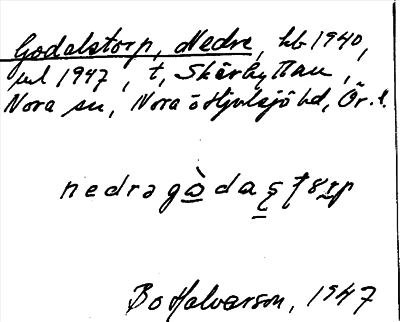 Godalstorp, Nedre, hb 1940,
ml 1947, t, Skärhyttan,
Nora sn, Nora o Hjulsjö hd, Ör. l.
nedrəgo̠̊daştɞrp
Bo Halvarson, 1947